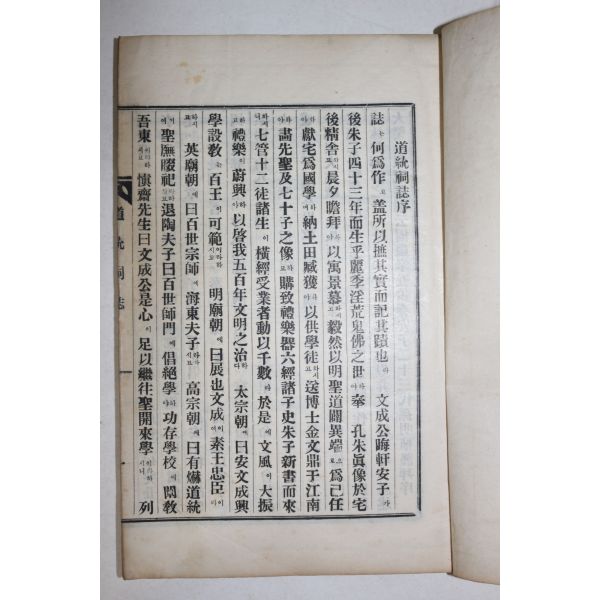 道統祠誌序
誌는 何爲作고 盖所以摭其實而記其蹟也라 文成公晦軒安子가
後朱子四十三年而生乎麗季淫荒鬼佛之世하야 奉 孔朱眞像於宅
後精舍하시고 晨夕瞻拜하야 以寓景慕하시고 毅然以明聖道闢異端으로 爲己任
하야 獻宅爲國學하며 納土田臧獲하야 以供學徒하시고 送博士金文鼎于江南
하야 畵先聖及七十子之像하고 購致禮樂器六經諸子史朱子新書而來
하시니 七管十二徒諸生이 橫經受業者動以千數라 於是에 文風이 大振
하고 禮樂이 蔚興하야 以啓我五百年文明之治하다 太宗朝에 曰安文成興
學設敎는 百王이 可範이라하시고 明廟朝에 曰展也文成이 素王忠臣이라
하시고 英廟朝에 曰百世宗師에 海東夫子라하시고 高宗朝에 曰有爀道統
에 聖憮腏祀라하시고 退陶夫子曰百世師門에 倡絶學하야 功存學校에 闡敎
吾東이라하시고 愼齋先生曰文成公是心이 足以繼往聖開來學이라하시니 列
道統祠誌